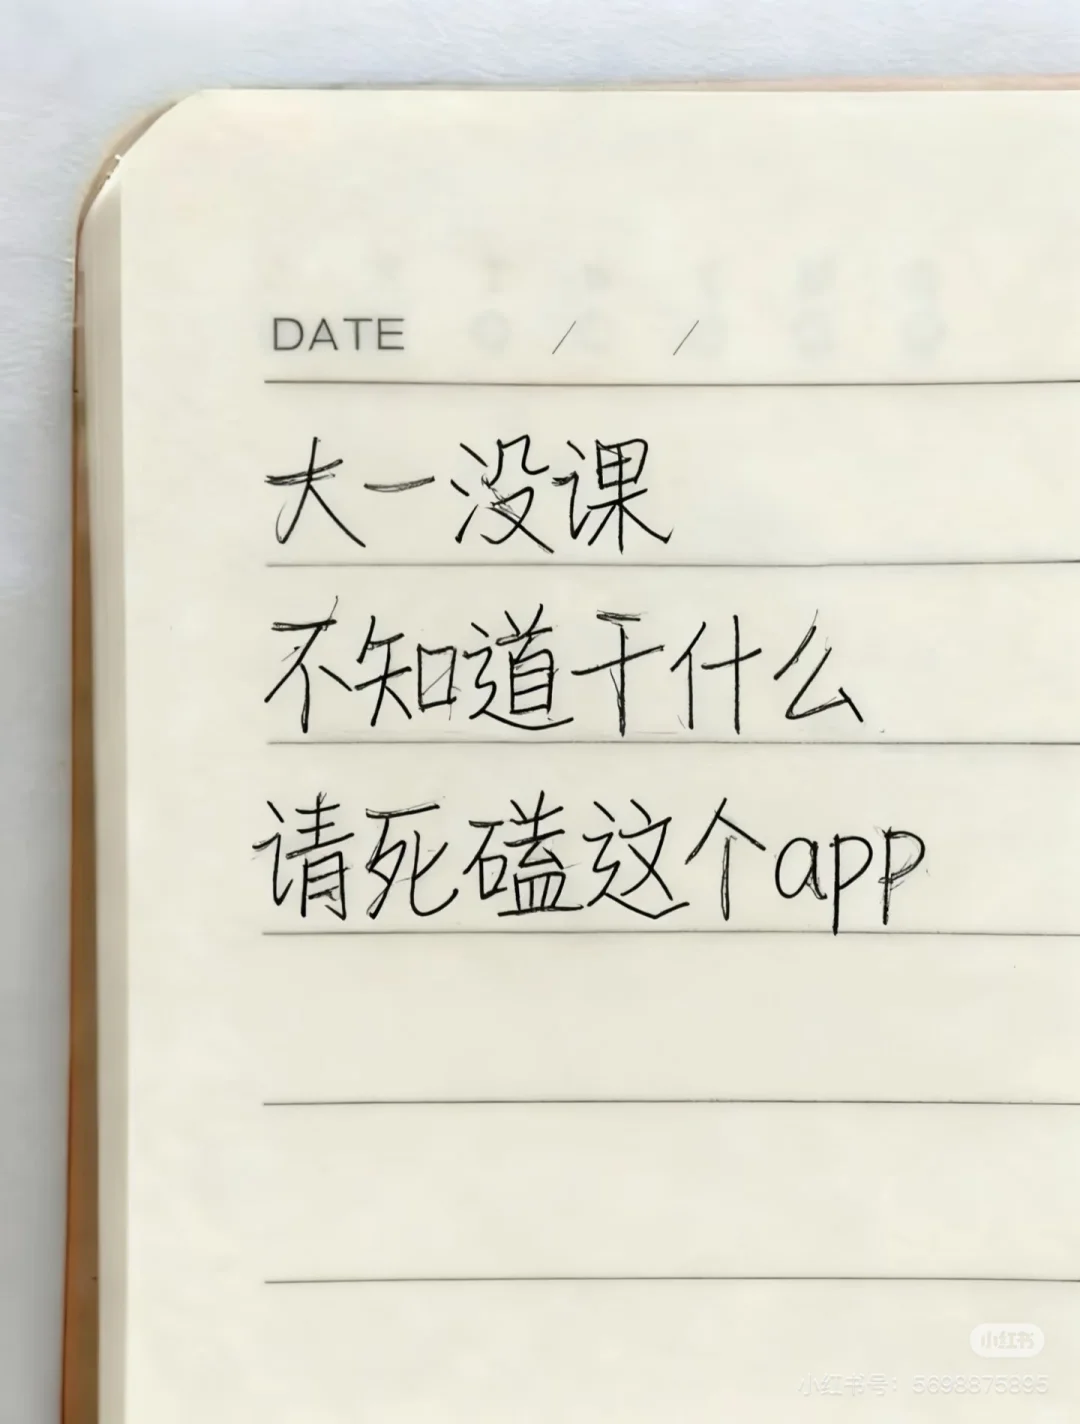 DATE / /
大一没课
不知道干什么
请死磕这个app
小红书
小红书号：5698875895